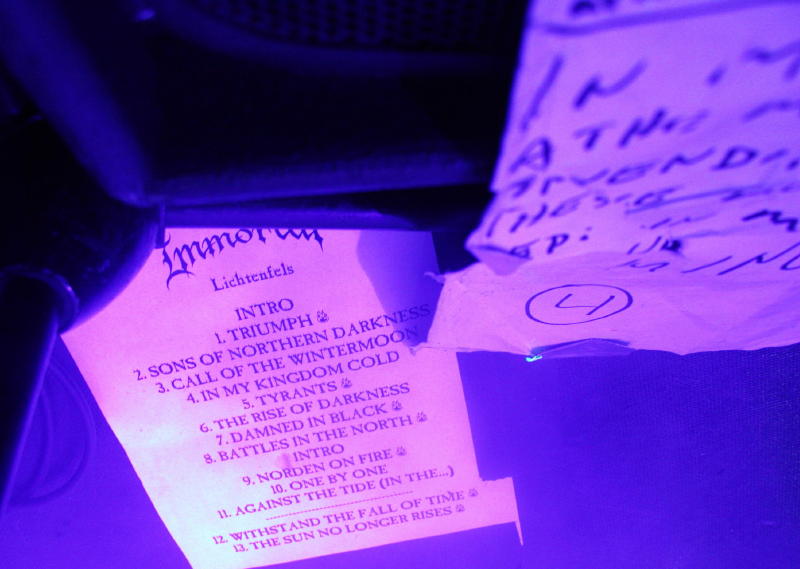 Immortal
Lichtenfels
INTRO
1. TRIUMPH
2. SONS OF NORTHERN DARKNESS
3. CALL OF THE WINTERMOON
4. IN MY KINGDOM COLD
5. TYRANTS
6. THE RISE OF DARKNESS
7. DAMNED IN BLACK
8. BATTLES IN THE NORTH
INTRO
9. NORDEN ON FIRE
10. ONE BY ONE
11. AGAINST THE TIDE (IN THE...)
--------------------
12. WITHSTAND THE FALL OF TIME
13. THE SUN NO LONGER RISES
IN
THESE
4